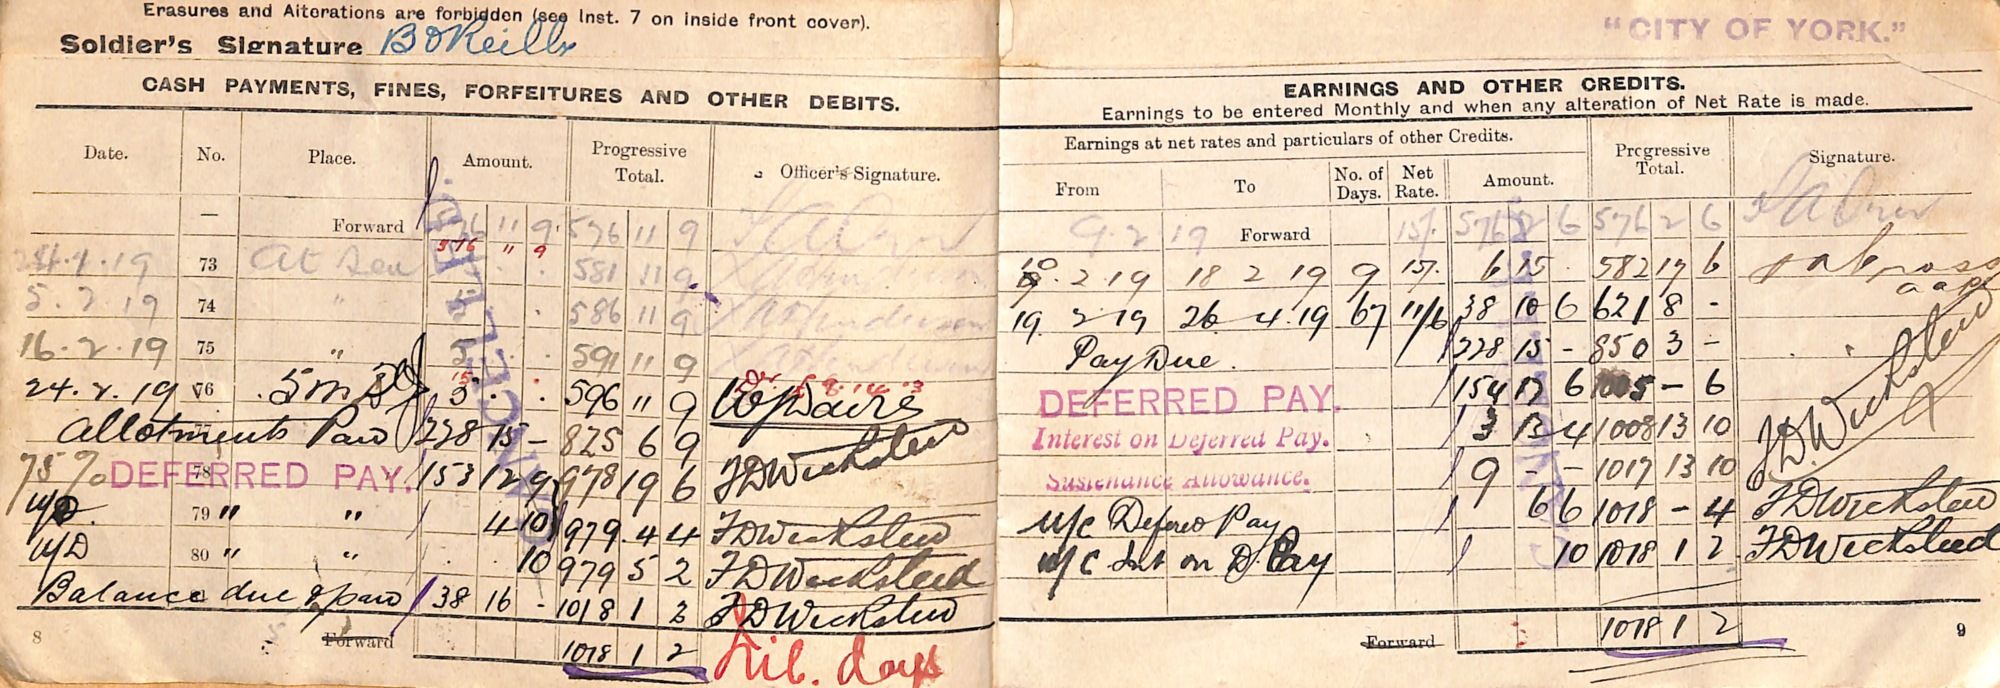 Erasures and Alterations are forbidden (see Inst. 7 on inside front cover).
Soldier's Signature B O'Reilly
"CITY OF YORK."
CASH PAYMENTS, FINES, FORFEITURES AND OTHER DEBITS.
Date. No. Place. Amount. Progressive Total. Officer's Signature.
— Forward 576 11 9 576 11 9
576 " 9
24.1.19 73 At Sea 5 . . 581 11 9
5.2.19 74 " 5 . . 586 11 9
16.2.19 75 " 5 . . 591 11 9
24.2.19 76 5 . . 596 11 9
Allotments Paid 228 15 - 825 6 9 F D Wicksteed
75% 78 DEFERRED PAY. 153 12 9 978 19 6 F D Wicksteed
79 " " 4 10 979 4 4 F D Wicksteed
80 " " 10 979 5 2 F D Wicksteed
Balance due & paid 38 16 - 1018 1 2 F D Wicksteed
8 Forward 1018 1 2
Lib. days
CANCELLED.
EARNINGS AND OTHER CREDITS.
Earnings to be entered Monthly and when any alteration of Net Rate is made.
Earnings at net rates and particulars of other Credits. Progressive Total. Signature.
From To No. of Days. Net Rate. Amount.
9.2.19 Forward 15/. 576 2 6 576 2 6
10.2.19 18 2 19 9 15/. 6 15 - 582 17 6
19. 2 19 26 4.19 67 11/6 38 10 6 621 8 -
Pay Due. 228 15 - 850 3 -
DEFERRED PAY. 154 17 6 1005 - 6
Interest on Deferred Pay. 3 13 4 1008 13 10 F D Wicksteed
Sustenance Allowance. 9 - - 1017 13 10
u/c Defered Pay 6 6 1018 - 4 F D Wicksteed
u/c Int on D. Pay 10 1018 1 2 F D Wicksteed
Forward 1018 1 2
9